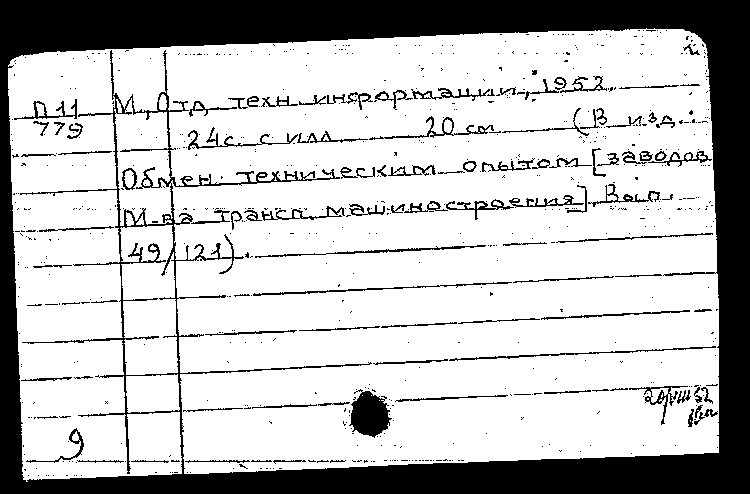 П 11
779
М., Отд. техн. информации, 1952.
24с. с илл. 20 см (В изд.:
Обмен техническим опытом [заводов
М-ва трансп. машиностроения]. Вып.
49/121).
9
20/VIII 52